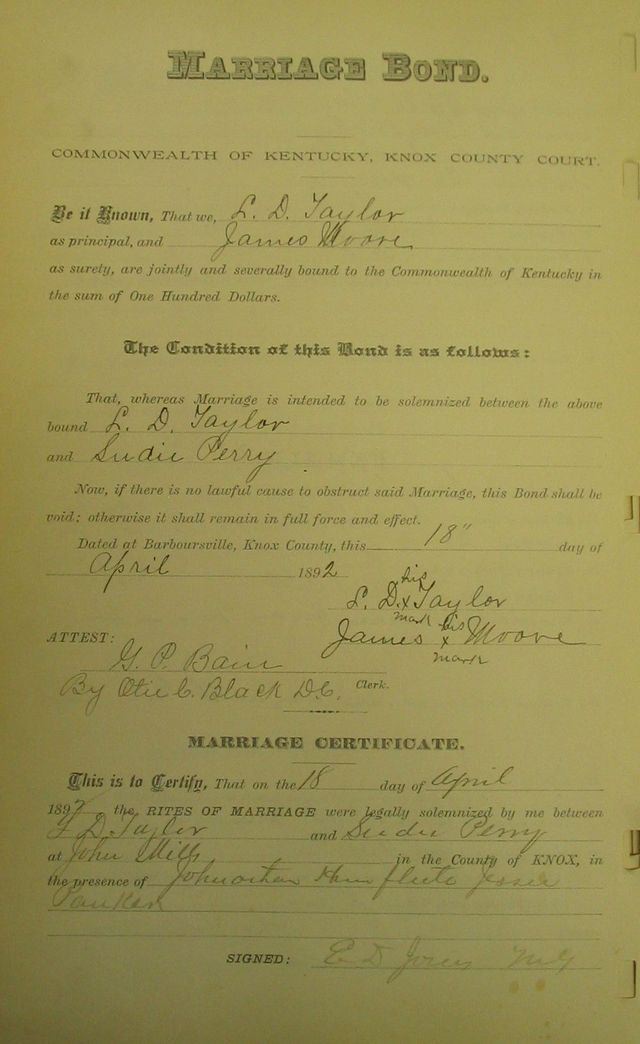 MARRIAGE BOND.
COMMONWEALTH OF KENTUCKY, KNOX COUNTY COURT.
Be it Known, That we, L. D. Taylor
as principal, and James Moore
as surety, are jointly and severally bound to the Commonwealth of Kentucky in
the sum of One Hundred Dollars.
The Condition of this Bond is as follows:
That, whereas Marriage is intended to be solemnized between the above
bound L. D. Taylor
and Sudie Perry
Now, if there is no lawful cause to obstruct said Marriage, this Bond shall be
void; otherwise it shall remain in full force and effect.
Dated at Barboursville, Knox County, this 18" day of
April 1892
his
L. D. x Taylor
mark his
ATTEST: James x Moore
mark
G. P. Bain
By Otie C. Black D.C. Clerk.
MARRIAGE CERTIFICATE.
This is to Certify, That on the 18 day of April
1892 the RITES OF MARRIAGE were legally solemnized by me between
L D Taylor and Sudie Perry
at John Mills in the County of KNOX, in
the presence of Jesse
SIGNED: E D Jones M G